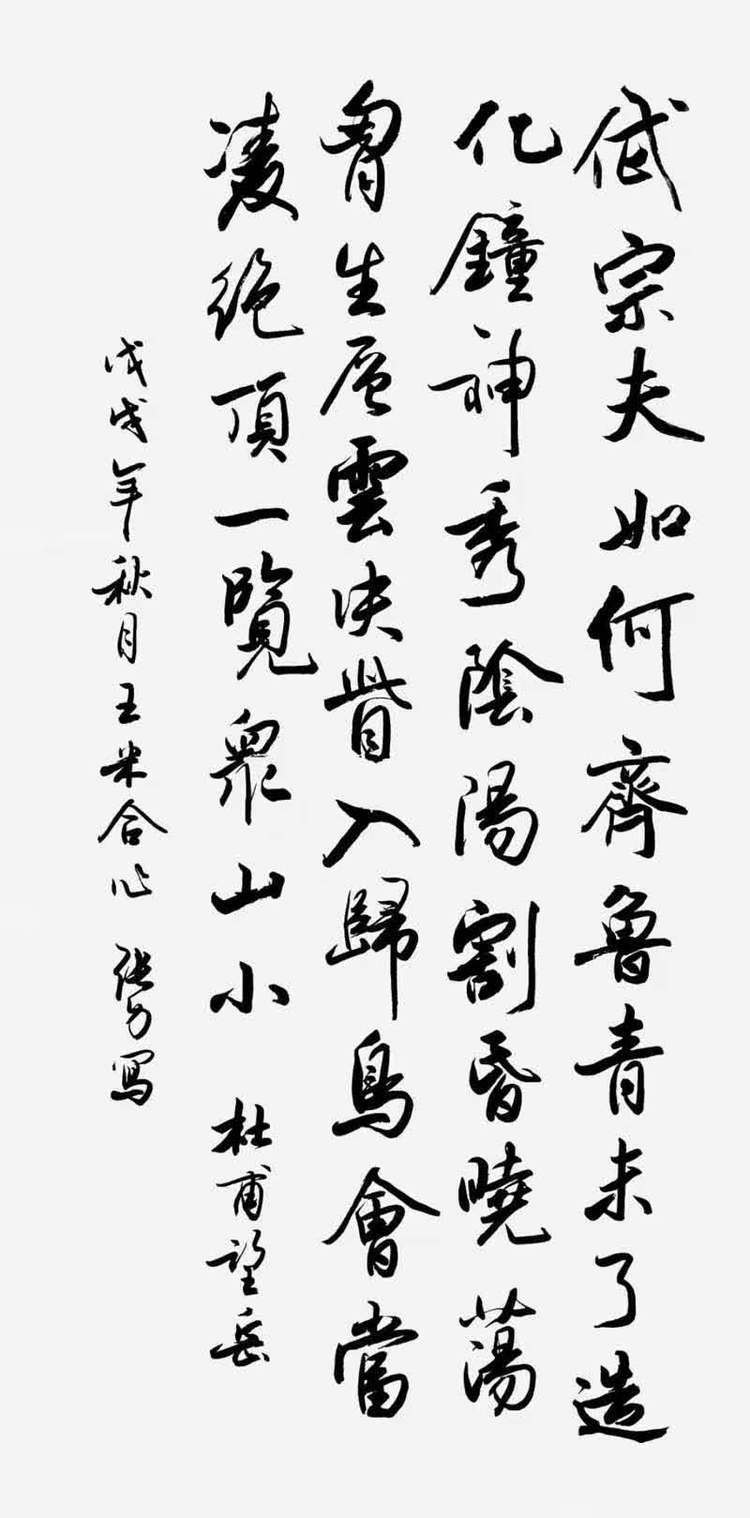 岱宗夫如何齊魯青未了造
化鐘神秀陰陽割昏曉蕩
胷生层雲決眥入歸鳥會當
凌絶頂一覽衆山小 杜甫望岳
戊戌年秋月王米合 張寫